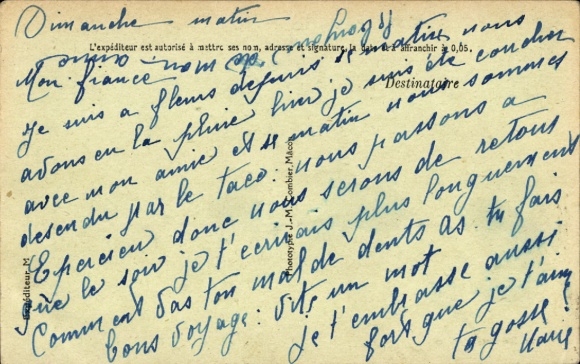 Dimanche matin
L'expéditeur est autorisé à mettre ses nom, adresse et signature, la date et à affranchir à 0,05.
Mon fiancé
Destinataire
Je suis a fleurs depuis ce matin nous
avons eu la pluine hier je suis été coucher
avec mon amie et se matin nous sommes
desendu par le taco. nous passons a
Epercieu donc nous serons de retour
que le soir je t'ecrirais plus longuement
Comment vas ton mal de dents As tu fais
bons voyage. Vite un mot
je t'embrasse aussi
fort que je t'aime
ta gosse
Phototypie J.-M. Combier, Mâcon
Expéditeur, M